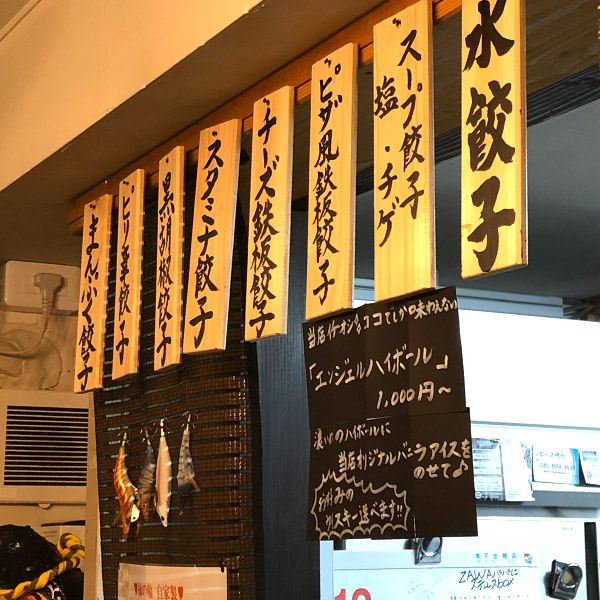 水餃子
スープ餃子
塩・チゲ
ピザ風鉄板餃子
チーズ鉄板餃子
スタミナ餃子
黒胡椒餃子
ピリ辛餃子
まんぷく餃子
当店イチオシ!ココでしか味わえない
「エンジェルハイボール」
1,000円〜
濃いめのハイボールに
当店オリジナルバニラアイスを
のせて♪
お好みの
ウイスキー選べます!!
自家製
ZAWA